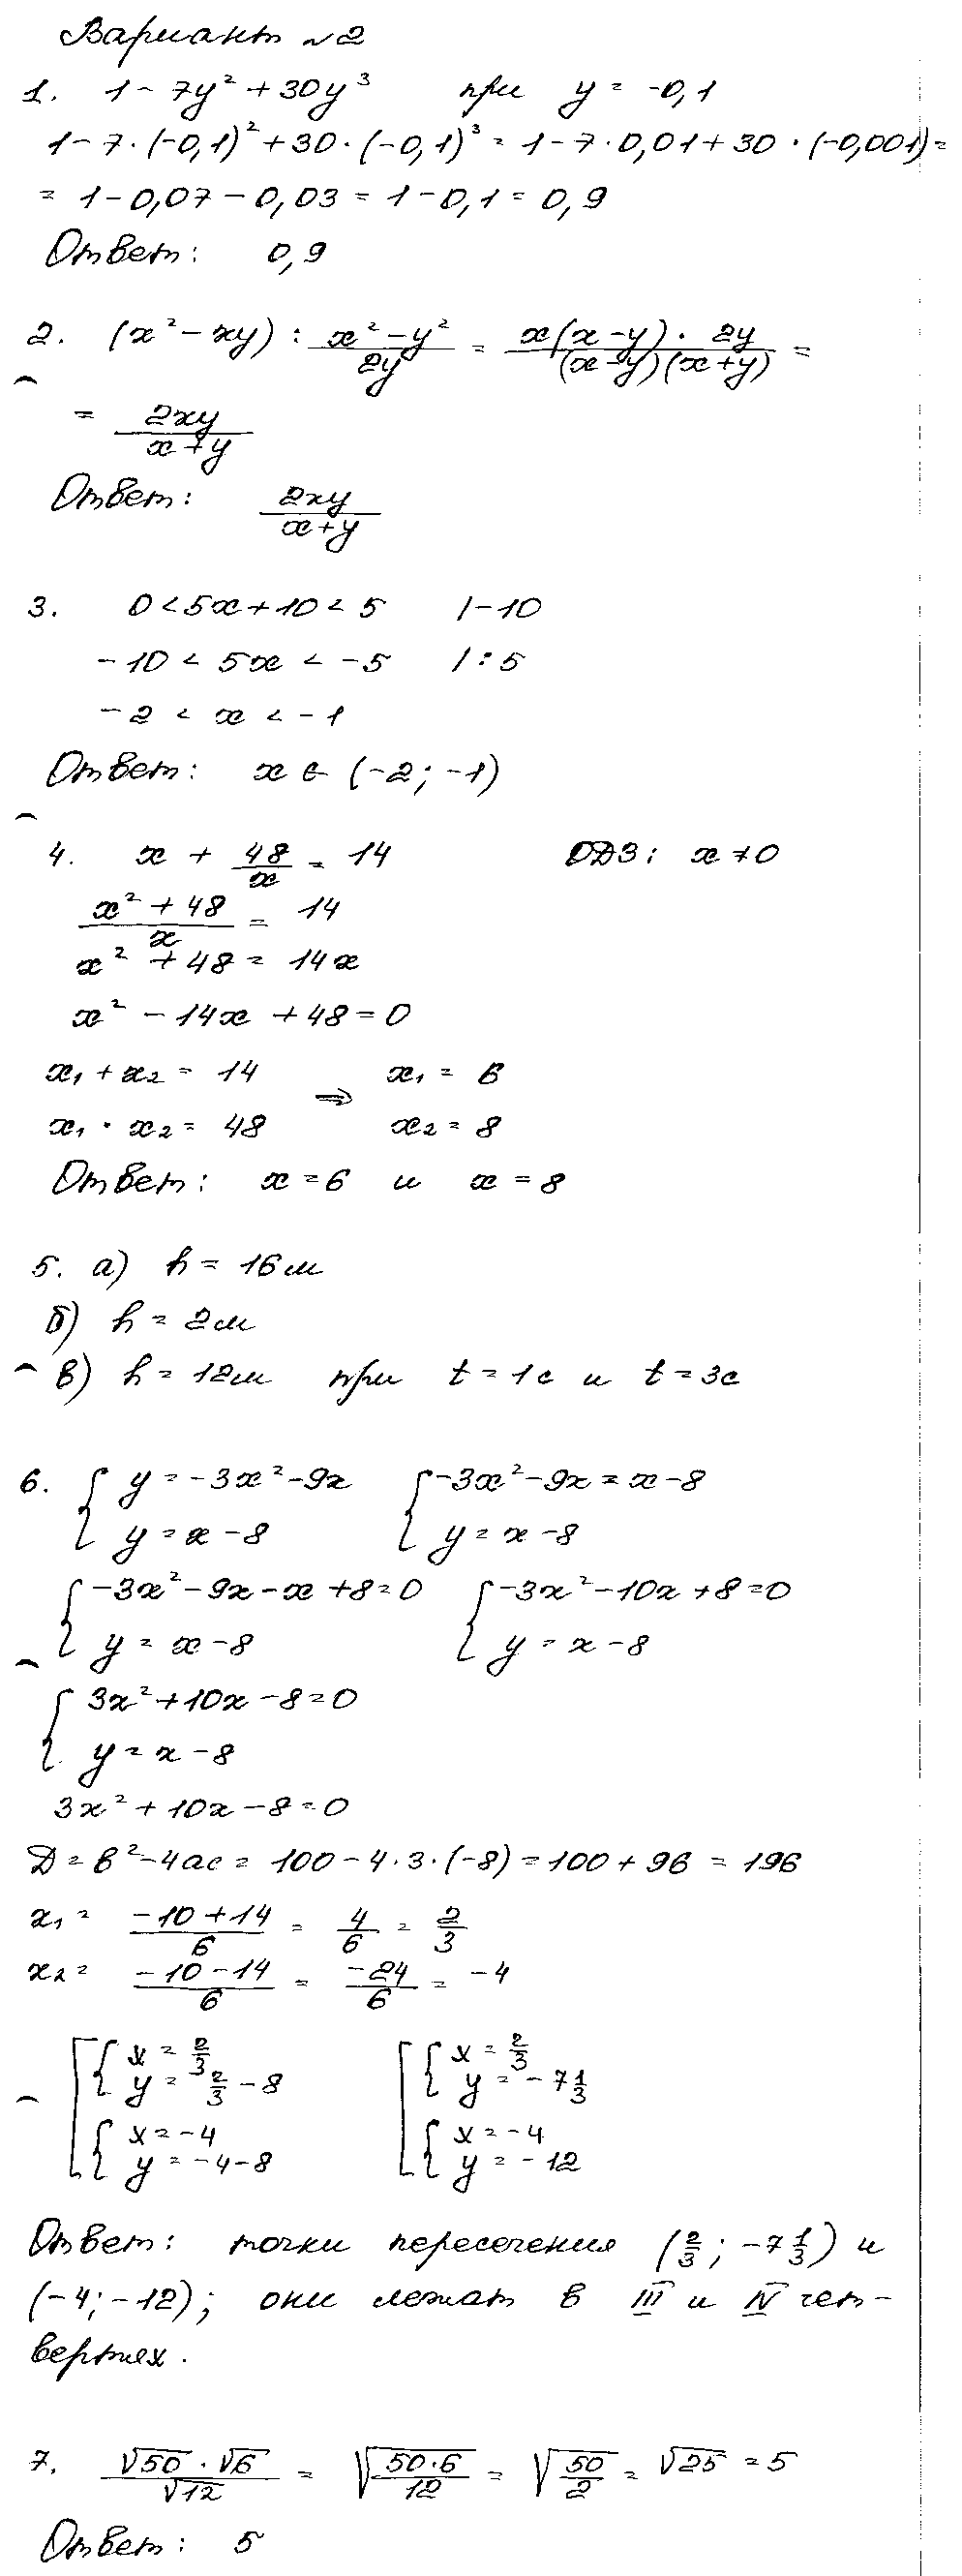 Вариант №2
1. 1 - 7y² + 30y³ при y = -0,1
1 - 7 · (-0,1)² + 30 · (-0,1)³ = 1 - 7 · 0,01 + 30 · (-0,001) =
= 1 - 0,07 - 0,03 = 1 - 0,1 = 0,9
Ответ: 0,9
2. (x² - xy) : (x² - y²)/(2y) = (x(x - y) · 2y)/((x - y)(x + y)) =
= 2xy/(x + y)
Ответ: 2xy/(x + y)
3. 0 < 5x + 10 < 5 | -10
-10 < 5x < -5 | : 5
-2 < x < -1
Ответ: x ∈ (-2; -1)
4. x + 48/x = 14 ОДЗ: x ≠ 0
(x² + 48)/x = 14
x² + 48 = 14x
x² - 14x + 48 = 0
x₁ + x₂ = 14 ⇒ x₁ = 6
x₁ · x₂ = 48 x₂ = 8
Ответ: x = 6 и x = 8
5. а) h = 16 м
б) h = 2 м
в) h = 12 м при t = 1 с и t = 3 с
6. { y = -3x² - 9x { -3x² - 9x = x - 8
y = x - 8 y = x - 8
{ -3x² - 9x - x + 8 = 0 { -3x² - 10x + 8 = 0
y = x - 8 y = x - 8
{ 3x² + 10x - 8 = 0
y = x - 8
3x² + 10x - 8 = 0
D = b² - 4ac = 100 - 4 · 3 · (-8) = 100 + 96 = 196
x₁ = (-10 + 14)/6 = 4/6 = 2/3
x₂ = (-10 - 14)/6 = -24/6 = -4
[ { x = 2/3 [ { x = 2/3
y = 2/3 - 8 y = -7 1/3
{ x = -4 { x = -4
y = -4 - 8 y = -12
Ответ: точки пересечения (2/3; -7 1/3) и
(-4; -12); они лежат в III и IV чет-
вертях.
7. (√50 · √6)/√12 = √(50 · 6/12) = √(50/2) = √25 = 5
Ответ: 5